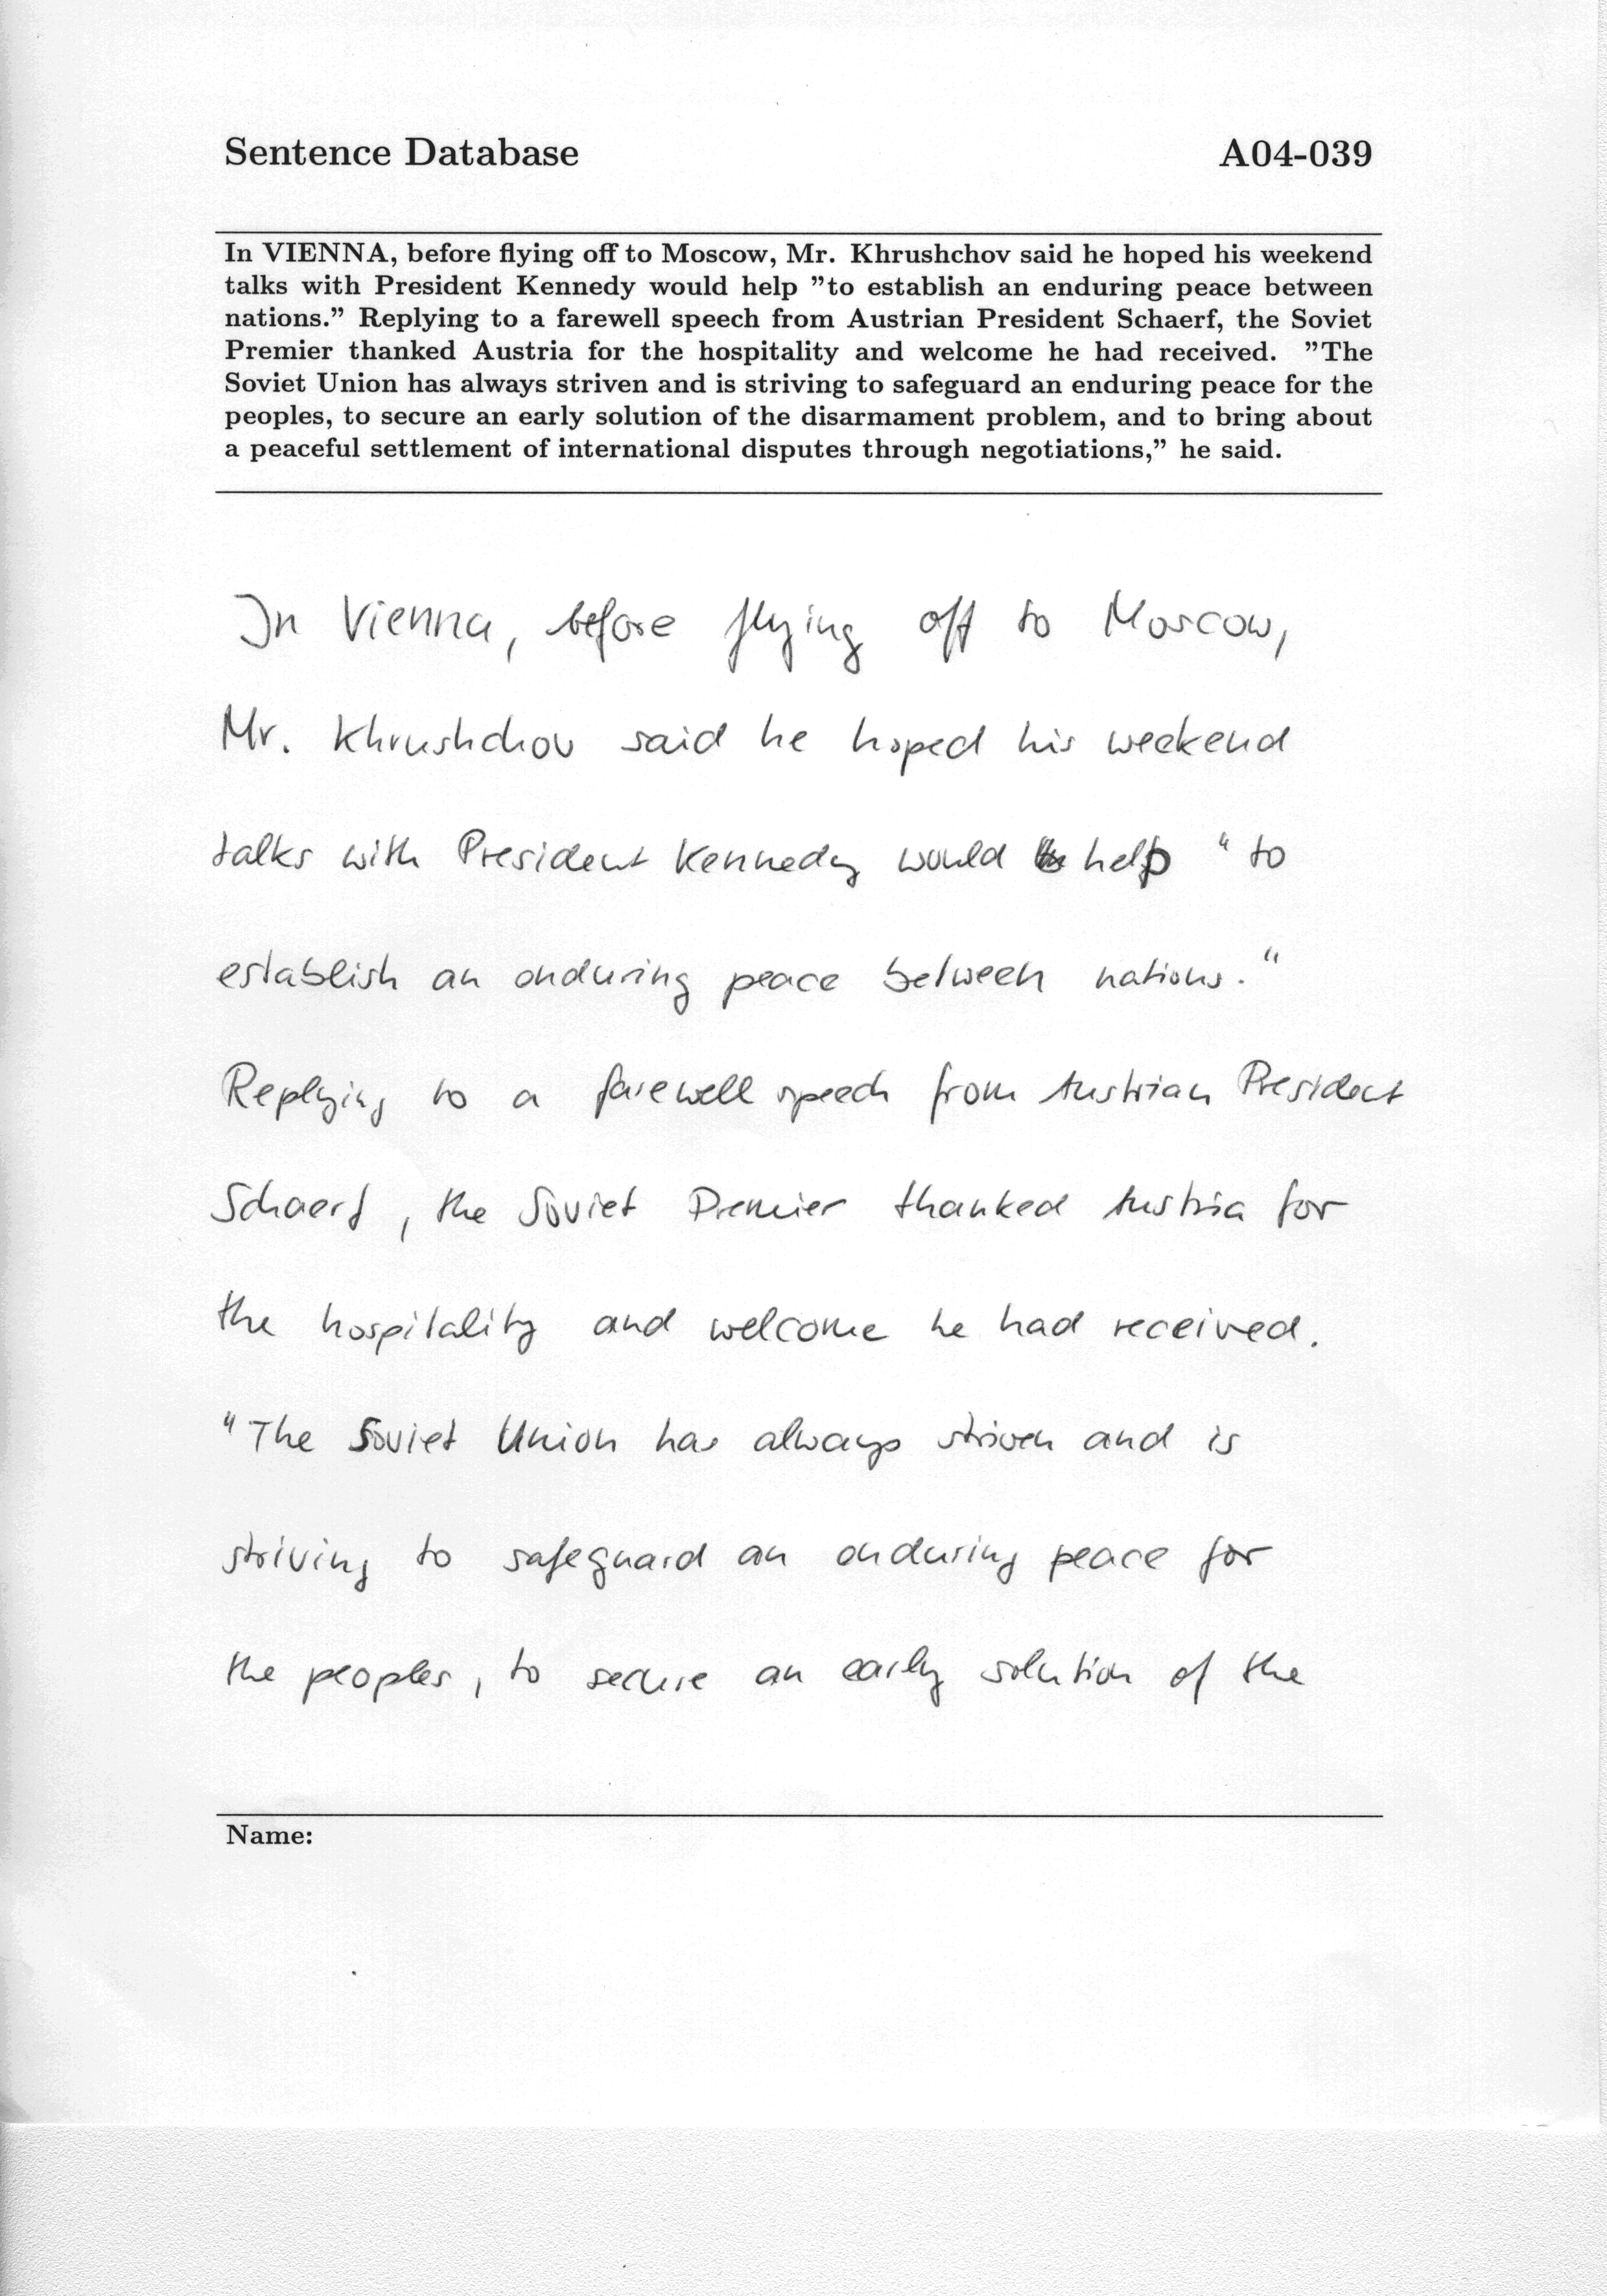 Sentence Database A04-039
In VIENNA, before flying off to Moscow, Mr. Khrushchov said he hoped his weekend
talks with President Kennedy would help ”to establish an enduring peace between
nations.” Replying to a farewell speech from Austrian President Schaerf, the Soviet
Premier thanked Austria for the hospitality and welcome he had received. ”The
Soviet Union has always striven and is striving to safeguard an enduring peace for the
peoples, to secure an early solution of the disarmament problem, and to bring about
a peaceful settlement of international disputes through negotiations,” he said.
In Vienna, before flying off to Moscow,
Mr. Khrushchov said he hoped his weekend
talks with President Kennedy would help “to
establish an enduring peace between nations.“
Replying to a farewell speech from Austrian President
Schaerf, the Soviet Premier thanked Austria for
the hospitality and welcome he had received.
“The Soviet Union has always striven and is
striving to safeguard an enduring peace for
the peoples, to secure an early solution of the
Name: